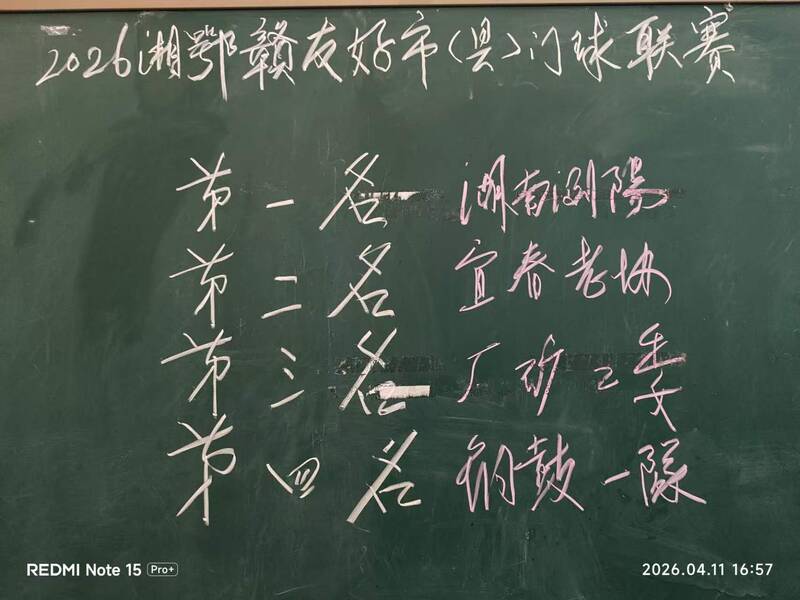 2026湘鄂赣友好市(县)门球联赛
第一名 湖南浏陽
第二名 宜春老协
第三名 厂矿工委
第四名 铜鼓一隊
REDMI Note 15 Pro+
2026.04.11 16:57